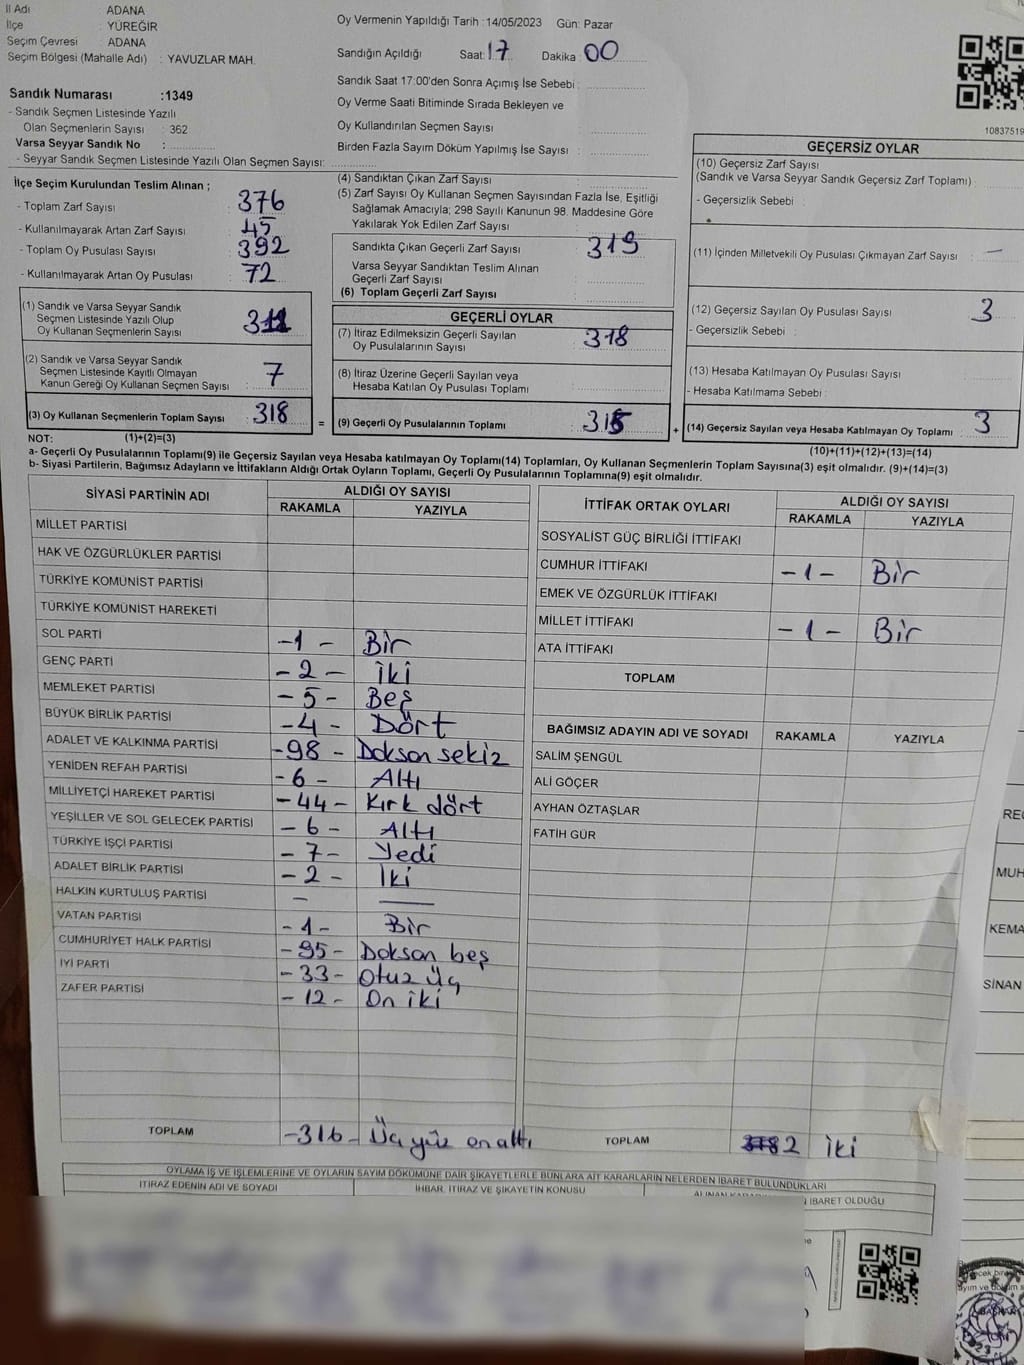 İl Adı : ADANA
İlçe : YÜREĞİR
Seçim Çevresi : ADANA
Seçim Bölgesi (Mahalle Adı) : YAVUZLAR MAH.
Sandık Numarası :1349
- Sandık Seçmen Listesinde Yazılı
Olan Seçmenlerin Sayısı : 362
Varsa Seyyar Sandık No :
- Seyyar Sandık Seçmen Listesinde Yazılı Olan Seçmen Sayısı:
Oy Vermenin Yapıldığı Tarih :14/05/2023 Gün: Pazar
Sandığın Açıldığı Saat: 17 Dakika : 00
Sandık Saat 17:00'den Sonra Açımış İse Sebebi :
Oy Verme Saati Bitiminde Sırada Bekleyen ve
Oy Kullandırılan Seçmen Sayısı :
Birden Fazla Sayım Döküm Yapılmış İse Sayısı :
1083751
İlçe Seçim Kurulundan Teslim Alınan ;
- Toplam Zarf Sayısı : 376
- Kullanılmayarak Artan Zarf Sayısı : 45
- Toplam Oy Pusulası Sayısı : 392
- Kullanılmayarak Artan Oy Pusulası : 72
(1) Sandık ve Varsa Seyyar Sandık
Seçmen Listesinde Yazılı Olup
Oy Kullanan Seçmenlerin Sayısı :
(2) Sandık ve Varsa Seyyar Sandık
Seçmen Listesinde Kayıtlı Olmayan
Kanun Gereği Oy Kullanan Seçmen Sayısı : 7
(3) Oy Kullanan Seçmenlerin Toplam Sayısı : 318
(4) Sandıktan Çıkan Zarf Sayısı :
(5) Zarf Sayısı Oy Kullanan Seçmen Sayısından Fazla İse, Eşitliği
Sağlamak Amacıyla; 298 Sayılı Kanunun 98. Maddesine Göre
Yakılarak Yok Edilen Zarf Sayısı :
Sandıkta Çıkan Geçerli Zarf Sayısı : 319
Varsa Seyyar Sandıktan Teslim Alınan
Geçerli Zarf Sayısı :
(6) Toplam Geçerli Zarf Sayısı :
GEÇERLİ OYLAR
(7) İtiraz Edilmeksizin Geçerli Sayılan
Oy Pusulalarının Sayısı : 318
(8) İtiraz Üzerine Geçerli Sayılan veya
Hesaba Katılan Oy Pusulası Toplamı :
= (9) Geçerli Oy Pusulalarının Toplamı :
GEÇERSİZ OYLAR
(10) Geçersiz Zarf Sayısı
(Sandık ve Varsa Seyyar Sandık Geçersiz Zarf Toplamı) :
- Geçersizlik Sebebi :
(11) İçinden Milletvekili Oy Pusulası Çıkmayan Zarf Sayısı : –
(12) Geçersiz Sayılan Oy Pusulası Sayısı : 3
- Geçersizlik Sebebi :
(13) Hesaba Katılmayan Oy Pusulası Sayısı :
- Hesaba Katılmama Sebebi :
+ (14) Geçersiz Sayılan veya Hesaba Katılmayan Oy Toplamı : 3
NOT: (1)+(2)=(3) (10)+(11)+(12)+(13)=(14)
a- Geçerli Oy Pusulalarının Toplamı(9) ile Geçersiz Sayılan veya Hesaba katılmayan Oy Toplamı(14) Toplamları, Oy Kullanan Seçmenlerin Toplam Sayısına(3) eşit olmalıdır. (9)+(14)=(3)
b- Siyasi Partilerin, Bağımsız Adayların ve İttifakların Aldığı Ortak Oyların Toplamı, Geçerli Oy Pusulalarının Toplamına(9) eşit olmalıdır.
SİYASİ PARTİNİN ADI ALDIĞI OY SAYISI
RAKAMLA YAZIYLA
MİLLET PARTİSİ
HAK VE ÖZGÜRLÜKLER PARTİSİ
TÜRKİYE KOMÜNİST PARTİSİ
TÜRKİYE KOMÜNİST HAREKETİ
SOL PARTİ -1- Bir
GENÇ PARTİ -2- İki
MEMLEKET PARTİSİ -5- Beş
BÜYÜK BİRLİK PARTİSİ -4- Dört
ADALET VE KALKINMA PARTİSİ -98- Doksan sekiz
YENİDEN REFAH PARTİSİ -6- Altı
MİLLİYETÇİ HAREKET PARTİSİ -44- Kırk dört
YEŞİLLER VE SOL GELECEK PARTİSİ -6- Altı
TÜRKİYE İŞÇİ PARTİSİ -7- Yedi
ADALET BİRLİK PARTİSİ -2- İki
HALKIN KURTULUŞ PARTİSİ – —
VATAN PARTİSİ -1- Bir
CUMHURİYET HALK PARTİSİ -95- Doksan beş
İYİ PARTİ -33- Otuz üç
ZAFER PARTİSİ -12- On iki
TOPLAM -316- Üç yüz on altı
İTTİFAK ORTAK OYLARI ALDIĞI OY SAYISI
RAKAMLA YAZIYLA
SOSYALİST GÜÇ BİRLİĞİ İTTİFAKI
CUMHUR İTTİFAKI -1- Bir
EMEK VE ÖZGÜRLÜK İTTİFAKI
MİLLET İTTİFAKI -1- Bir
ATA İTTİFAKI
TOPLAM
BAĞIMSIZ ADAYIN ADI VE SOYADI RAKAMLA YAZIYLA
SALİM ŞENGÜL
ALİ GÖÇER
AYHAN ÖZTAŞLAR
FATİH GÜR
TOPLAM 2 iki
REC
MUH
KEMA
SİNAN
OYLAMA İŞ VE İŞLEMLERİNE VE OYLARIN SAYIM DÖKÜMÜNE DAİR ŞİKAYETLERLE BUNLARA AİT KARARLARIN NELERDEN İBARET BULUNDUKLARI
İTİRAZ EDENİN ADI VE SOYADI İHBAR, İTİRAZ VE ŞİKAYETİN KONUSU
İBARET OLDUĞU